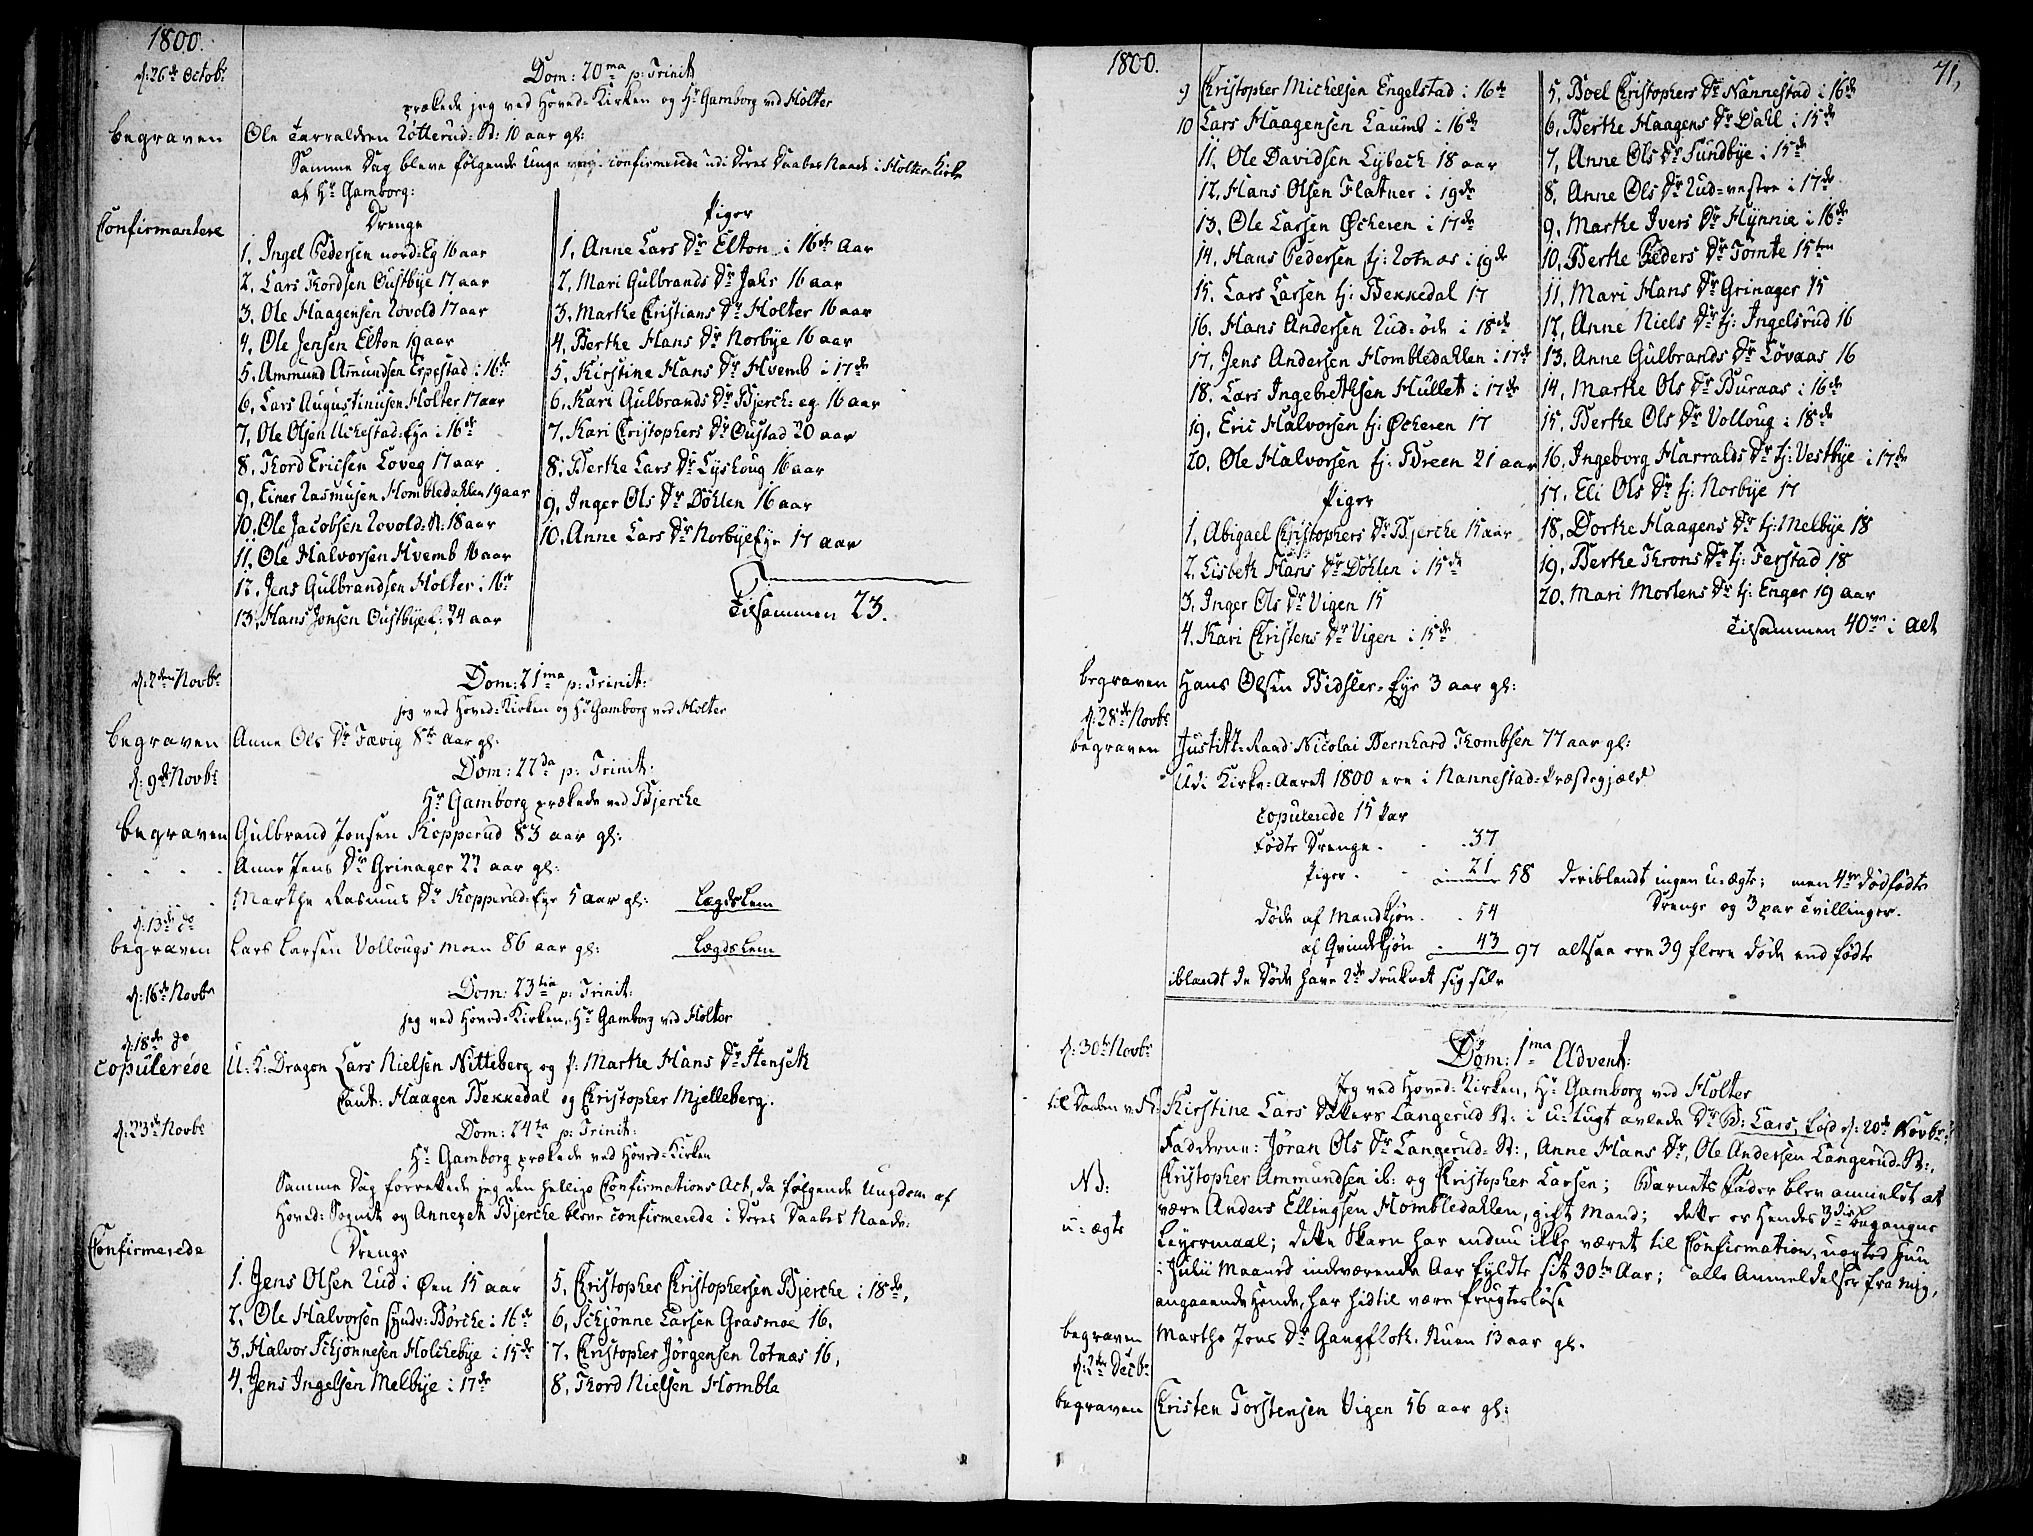 1800.
d: 26de Octobr
Dom: 20ma p: Trinit
prækede jeg ved Hoved-Kirken og Hr Gamborg ved Holter
begraven Ole Tarraldsen Rotterud: N: 10 aar gl:
Samme Dag bleve følgende Unge confirmerede udi Deres Daabes Naade i Holter Kirke
af Hr Gamborg:
Confirmantere
Drenge
1, Ingel Pedersen nord: Eg 16 aar
2. Lars Thordsen Oustbye 17 aar
3. Ole Haagensen Rovold 17 aar
4. Ole Jensen Elton 19 aar
5. Ammund Amundsen Erpestad i 16de
6. Lars Augustinusen Holter 17 aar
7, Ole Olsen Uckestad: Eye i 16de
8, Thord Ericsen Loveg 17 aar
9, Einer Rasmusen Hombledahlen 19 aar
10. Ole Jacobsen Rovold: N: 18 aar
11. Ole Halvorsen Hvemb 16 aar
12. Jens Gulbrandsen Holter i 16de
13, Hans Jonsen Oustbye: 24 aar
Piger
1, Anne Lars Dr Elton i 16de Aar
2, Mari Gulbrands Dr Jahr 16 aar
3, Marthe Christians Dr Holter 16 aar
4, Berthe Hans Dr Norbye 16 aar
5, Kirstine Hans Dr Hvemb i 17de
6, Kari Gulbrands Dr Bjerch: eg 16 aar
7, Kari Christophers Dr Oustad 20 aar
8, Berthe Lars Dr Lyshoug 16 aar
9, Inger Ols Dr Døhlen 16 aar
10. Anne Lars Dr Norbye Eye 17 aar
Tilsammen 23.
d: 2den Novbr
Dom: 21ma p: Trinit:
jeg ved Hoved-Kirken og Hr Gamborg ved Holter
begraven Anne Ols Dr Fævig 8te Aar gl:
d: 9de Novbr
Dom: 22da p: Trinit:
Hr Gamborg prækede ved Bjercke
begraven Gulbrand Jonsen Kopperud 83 aar gl:
Anne Jens Dr Grinager 22 aar gl:
Marthe Rasmus Dr Kopperud-Eye 5 aar gl: LægdsLem
d: 13de do
begraven Lars Larsen Vollougs moen 86 aar gl: LægdsLem
d: 16de Novbr
Dom: 23tia p: Trinit:
jeg ved Hoved-Kirken, Hr Gamborg ved Holter
d: 18de do
copulerede U: K: Dragon Lars Nielsen Nitteberg og P: Marthe Hans Dr Stenseth
Caut: Haagen Bekkedal og Christopher Mjelleberg.
d: 23de Novbr
Dom: 24ta p: Trinit:
Hr Gamborg prækede ved Hoved-Kirken
Samme Dag forrettede jeg den hellige Confirmations Act, da følgende Ungdom af
Hoved: Sognet og Annexet Bjercke bleve confirmerede i Deres Daabes Naade:
Confirmerede
Drenge
1. Jens Olsen Rud i Øen 15 aar
2. Ole Halvorsen Syndr: Børcke i 16de
3. Halvor Schjønnesen Holckebye i 15de
4. Jens Ingelsen Melbye i 17de
5. Christopher Christophersen Bjercke i 18de,
6, Schjønne Larsen Grasmoe 16.
7. Christopher Jørgensen Rotnæs 16,
8. Thord Nielsen Homble
1800.
71,
9 Christopher Michelsen Engelstad i 16de
10 Lars Haagensen Laumb i 16de
11. Ole Davidsen Lybech 18 aar
12. Hans Olsen Flatner i 19de
13. Ole Larsen Øckeren i 17de
14. Hans Pedersen tj: Rotnæs i 19de
15. Lars Larsen tj: Bekkedal 17
16. Hans Andersen Rud-øde i 18de
17, Jens Andersen Hombledahlen i 17de
18. Lars Ingebrethsen Hullet i 17de
19. Eric Halvorsen tj: Øckeren 17
20. Ole Halvorsen tj: Breen 21 aar
Piger
1, Abigael Christophers Dr Bjercke 15 aar
2. Lisbeth Hans Dr Døhlen i 15de
3. Inger Ols Dr Vigen 15
4. Kari Christens Dr Vigen i 15de
5, Boel Christophers Dr Nannestad i 16de
6, Berthe Haagens Dr Dahl i 15de
7, Anne Ols Dr Sundbye i 15de
8. Anne Ols Dr Rud-vestre i 17de
9. Marthe Ivers Dr Hynnie i 16de
10, Berthe Peders Dr Tømte 15ten
11, Mari Hans Dr Grinager 15
12, Anne Niels Dr tj: Ingelsrud 16
13. Anne Gulbrands Dr Løvaas 16
14, Marthe Ols Dr Buraas i 16de
15. Berthe Ols Dr Volloug i 18de
16, Ingeborg Harralds Dr tj: Vestbye i 17de
17. Eli Ols Dr tj: Norbye 17
18. Dorthe Haagens Dr tj: Melbye 18
19. Berthe Throns Dr tj: Ferstad 18
20. Mari Mortens Dr tj: Enger 19 aar
Tilsammen 40ve i Alt
begraven Hans Olsen Bidsler-Eye 3 aar gl:
d: 28de Novbr
begraven Justitz-Raad Nicolai Bernhard Thombsen 77 aar gl:
Udi Kirke-Aaret 1800 ere i Nannestad-Præstegjæld
copulerede 15 Par
Fødte Drenge . . 37
Piger . . 21 58 deriblandt ingen u-ægte; men 4re dødfødte
Drenge og 3 par Tvillinger.
Døde af Mandkjøn . . 54
af Qvindekjøn . 43 97 altsaa ere 39 flere døde end fødte
iblandt de Døde have 2de druknet sig selv
d: 30te Novbr
Dom: 1ma Advent:
Jeg ved Hoved-Kirken, Hr Gamborg ved Holter
til Daaben v: Kirstine Lars Datters Langerud N: i u-tugt avlede Dr B: Lars, født d: 20de Novbr:
Faddere: Jøran Ols Dr Langerud-N:, Anne Hans Dr, Ole Andersen Langerud-N:,
NB: Christopher Ammundsen ib: og Christopher Larsen; Barnets Fader blev anmeldet at
være Anders Ellingsen Hombledahlen, gift Mand; dette er hendes 3die begangne
u-ægte Leyermaal; dette Skarn har endnu ikke været til Confirmation, uagted hun
i Julii Maaned indeværende Aar fyldte sit 30te Aar; alle Anmeldelser fra mig,
angaaende Hende, har hidtil være frugtesløse
begraven Marthe Jens Dr Gangfloth: Ruen 13 aar gl.
d: 2den Decbr.
begraven Christen Torstensen Vigen 56 aar gl: